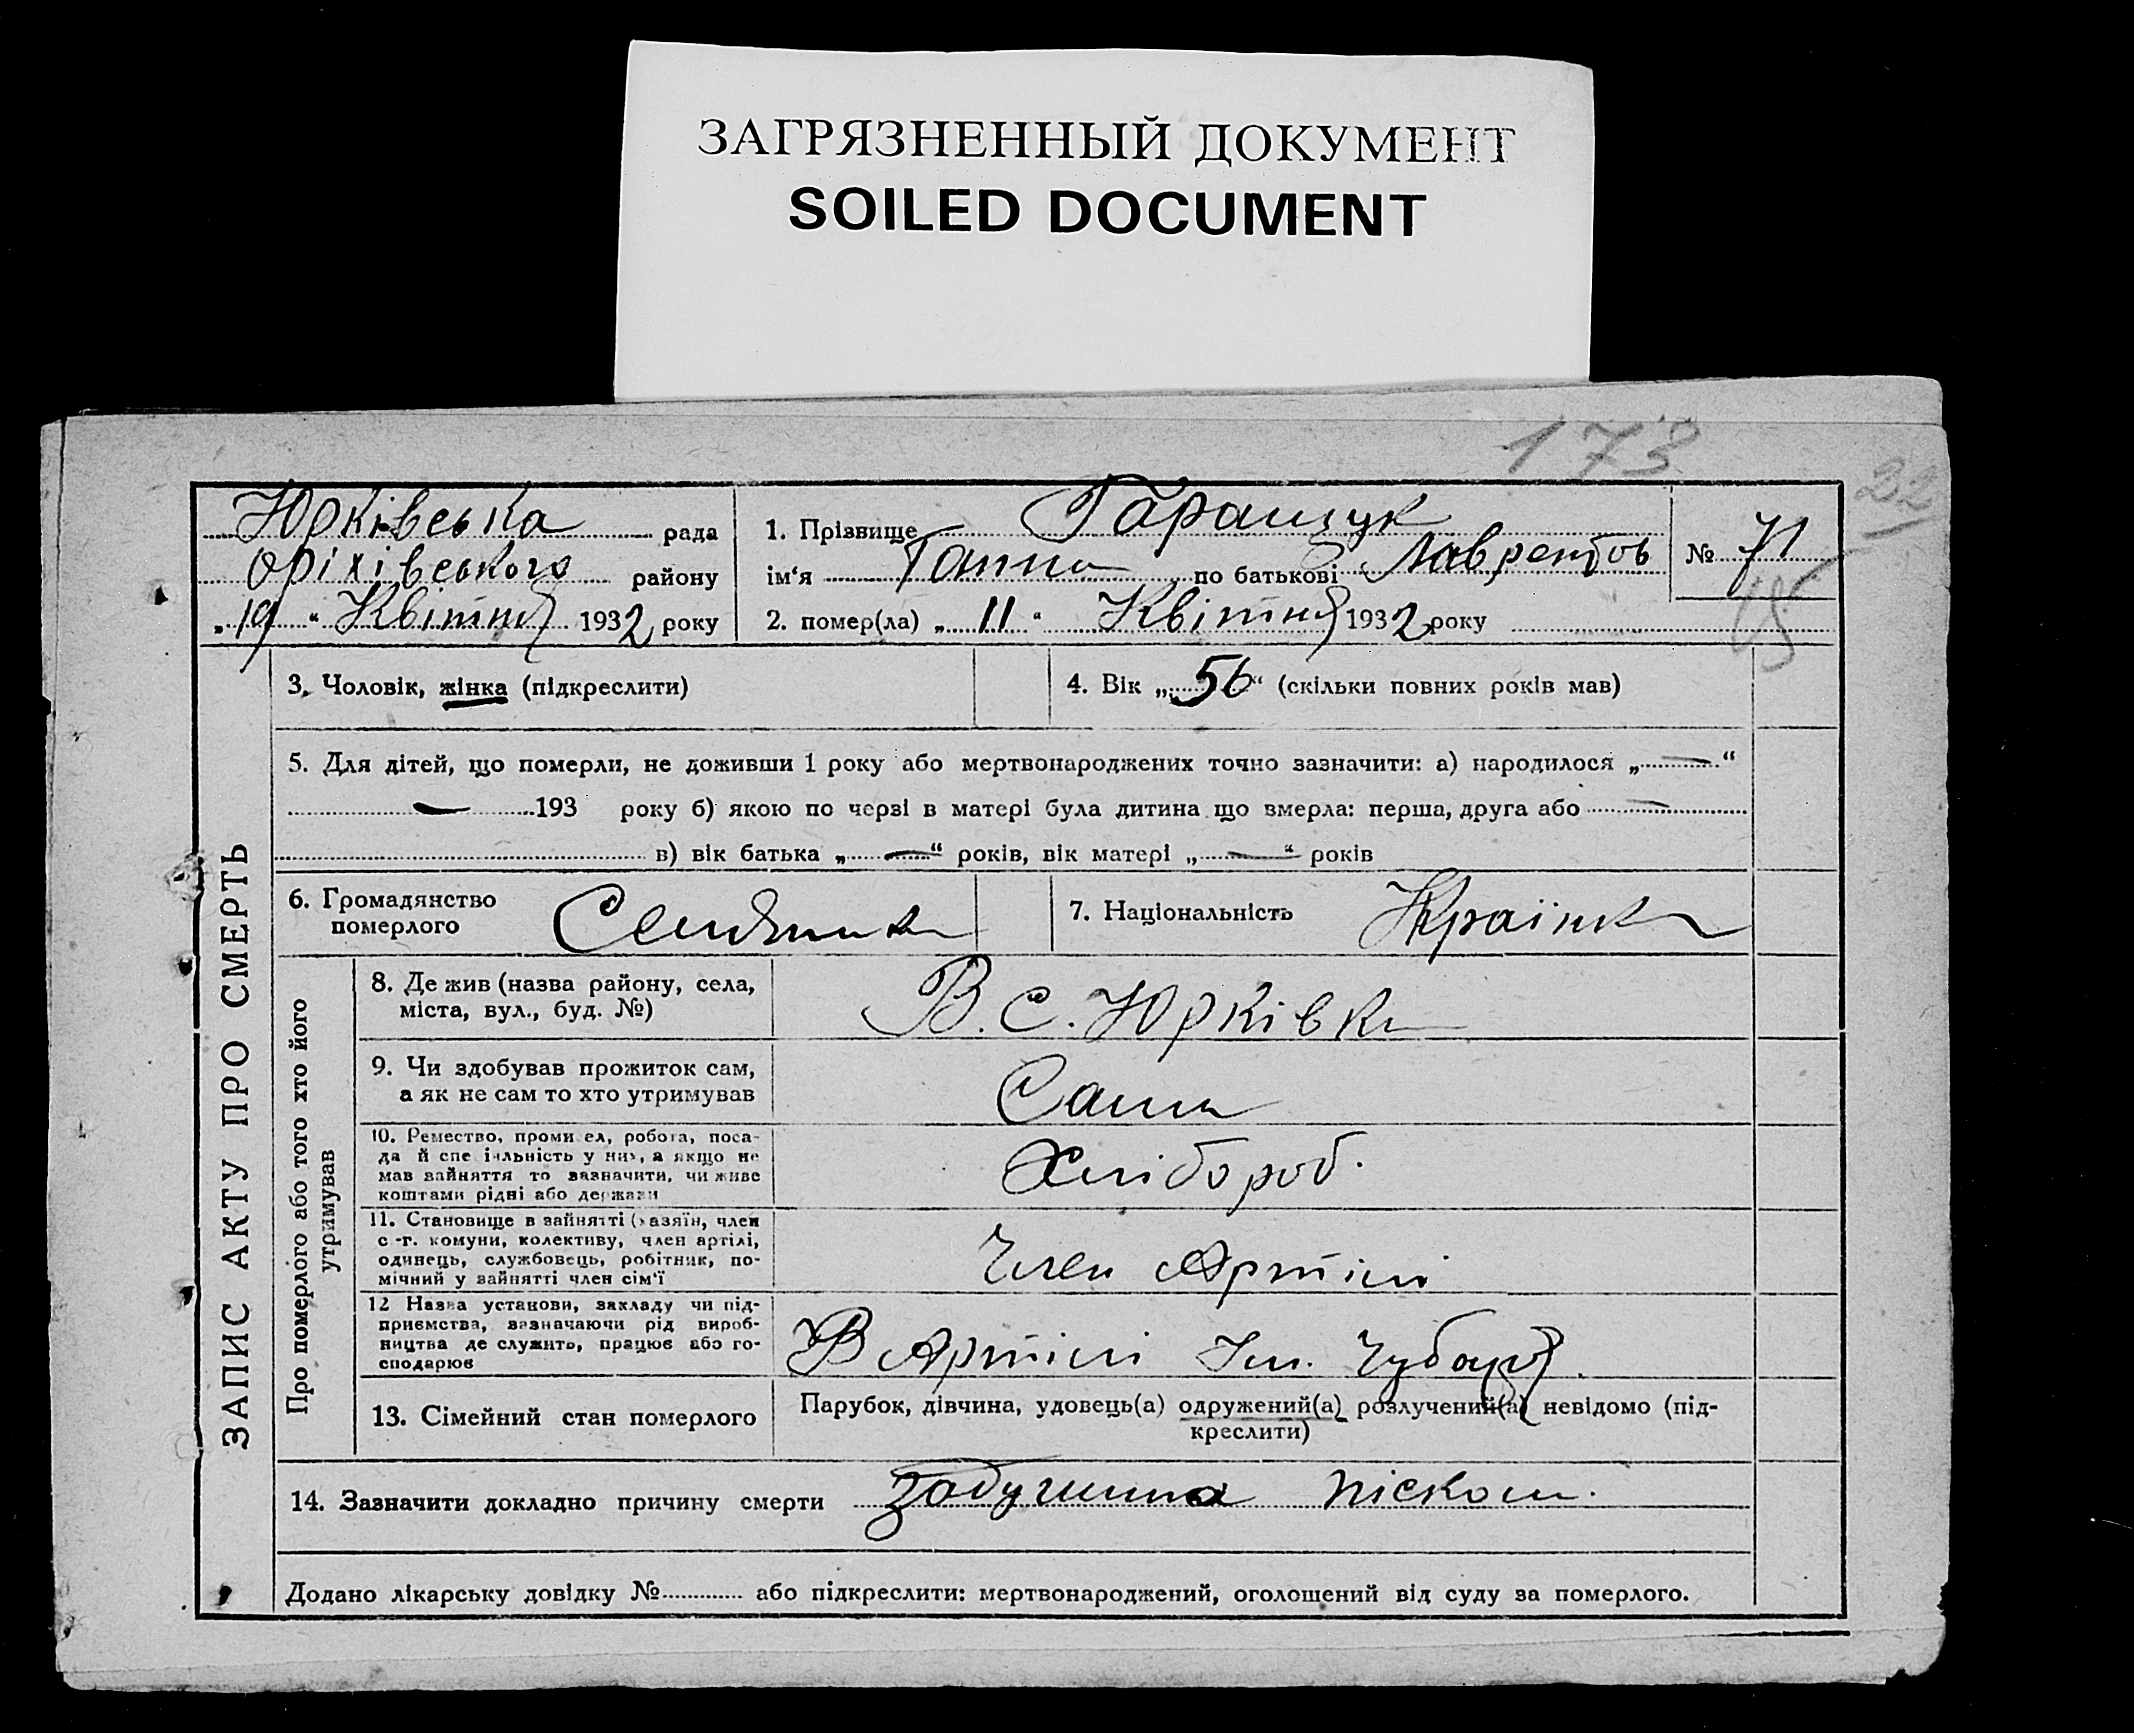 ЗАГРЯЗНЕННЫЙ ДОКУМЕНТ
SOILED DOCUMENT
173
22
Юрківська рада
Оріхівського району
„19“ Квітня 1932 року
1. Прізвище Гаращук
ім‘я Ганна по батькові Лаврентов
№ 71
2. помер(ла) „11“ Квітня 1932 року
ЗАПИС АКТУ ПРО СМЕРТЬ
3. Чоловік, жінка (підкреслити)
4. Вік „56“ (скільки повних років мав)
5. Для дітей, що померли, не доживши 1 року або мертвонароджених точно зазначити: а) народилося „—“
— 193 року б) якою по черзі в матері була дитина що вмерла: перша, друга або —
в) вік батька „—“ років, вік матері „—“ років
6. Громадянство
померлого
Селянка
7. Національність Українка
Про померлого або того хто його
утримував
8. Де жив (назва району, села,
міста, вул., буд. №)
В. С. Юрківка
9. Чи здобував прожиток сам,
а як не сам то хто утримував
Сама
10. Ремество, промисел, робота, поса-
да й спеціяльність у них, а якщо не
мав зайняття то зазначити, чи живе
коштами рідні або держави
Хлібороб.
11. Становище в зайнятті (хазяїн, член
с.-г. комуни, колективу, член артілі,
одинець, службовець, робітник, по-
мічний у зайнятті член сім‘ї
Член Артілі
12 Назва установи, закладу чи під-
приємства, зазначаючи рід вироб-
ництва де служить, працює або го-
сподарює
В Артілі Ім. Чубаря.
13. Сімейний стан померлого
Парубок, дівчина, удовець(а) одружений(а) розлучений(а) невідомо (під-
креслити)
14. Зазначити докладно причину смерти задушина піском.
Додано лікарську довідку № або підкреслити: мертвонароджений, оголошений від суду за померлого.